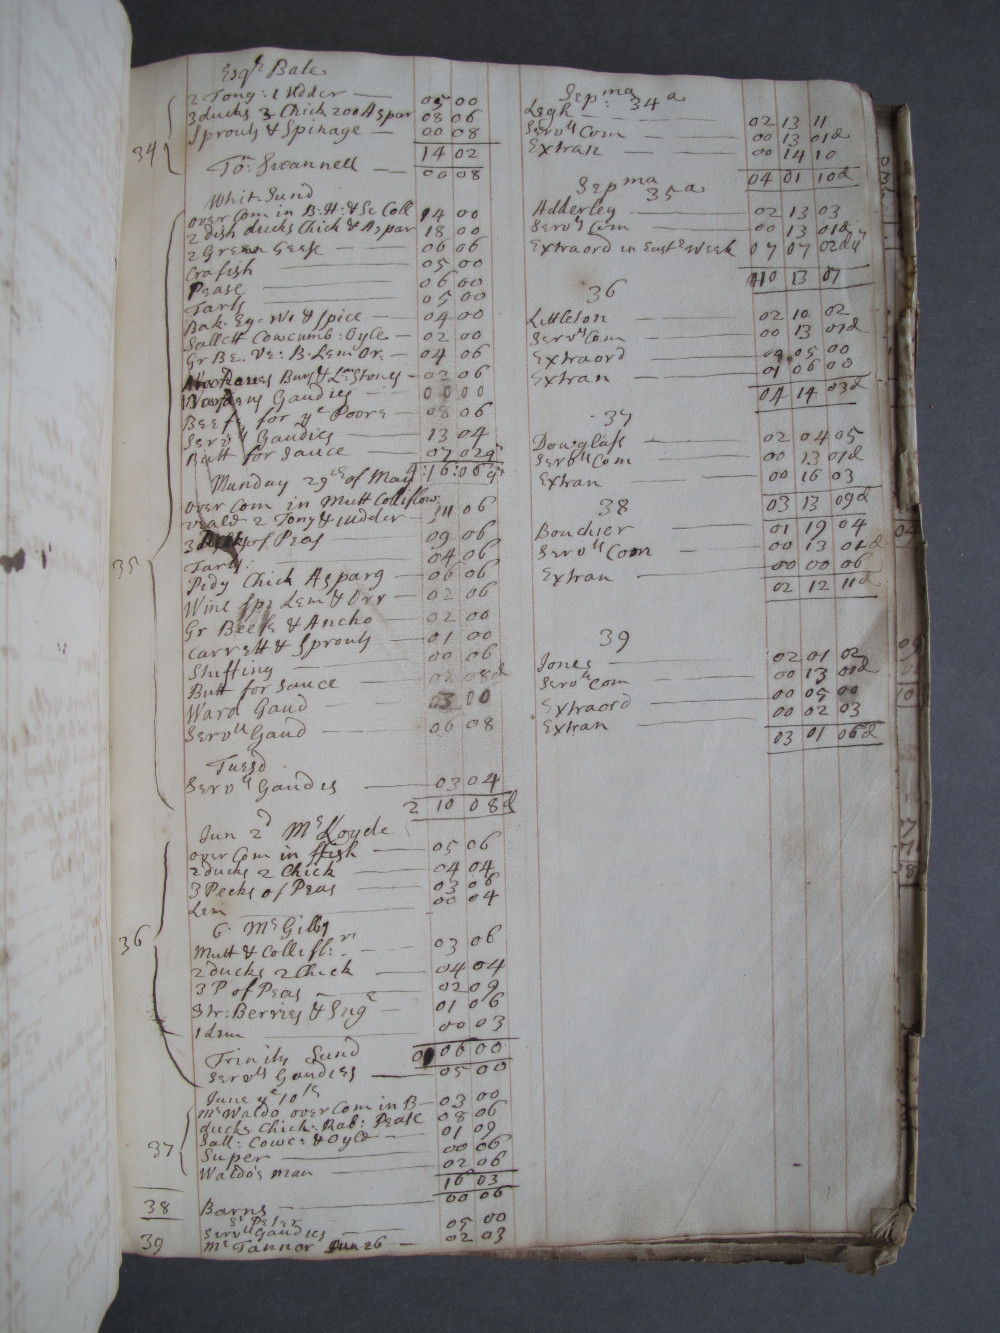 Esqr Bale
2 Tong: 1 Udder — 05 00
3 ducks 3 Chick 200 Aspar 08 06
Sprouts & Spinage — 00 08
34
14 02
To: Swannell — 00 08
Whit-Sund
over Com in B. H: & Sc Coll 14 00
2 dish ducks Chick & Aspar 18 00
2 Green Geese — 06 06
Crafish — 05 00
Pease — 06 00
Tarts — 05 00
Bak. Eg. Wi & Spice — 04 00
Sallett Cowcumb: Oyle — 02 00
Gr Be. Ve: B. Lem. Or. — 04 06
Bars & Stones — 02 06
Wardens Gaudies — 00 00
Beef for ye Poore — 08 06
Servts Gaudies — 13 04
Butt for Sauce — 07 02q
Munday 29th of May 4:16:06q
over Com in Mutt Colliflow
veale 2 Tong & 1 udder — 11 06
3 of Peas — 09 06
Tarts — 04 06
35
Pidg Chick Asparg — 06 06
Wine Spi Lem & Orr — 02 06
Gr Beets & Ancho — 02 00
Carrett & Sprouts — 01 00
Stuffing — 00 06
Butt for Sauce — 02 08d
Ward Gaud — 03 00
Servts Gaud — 06 08
Tuesd
Servts Gaudies — 03 04
2 10 08d
Jun 2d Mr Loyde
over Com in ffish — 05 06
2 ducks 2 Chick — 04 04
3 Pecks of Peas — 03 06
Lem — 00 04
36
6. Mr Gilby
Mutt & Collifl: — 03 06
2 ducks 2 Chick — 04 04
3 P of Peas — 02 09
Str: Berries & Sug — 01 06
1 Lem — 00 03
06 00
Trinity Sund
Servts Gaudies — 05 00
June ye 10th
Mr Waldo over Com in B — 03 00
ducks Chick: Rab: Pease 08 06
Sall: Cowc: & Oyle — 01 09
37
Super — 00 06
Waldo's man — 02 06
16 03
38 Barns — 00 06
St Peter
Servts Gaudies — 05 00
39 Mr Tannor Jun 26 — 02 03
Sepma: 34a
Legh — 02 13 11
Servts Com — 00 13 01d
Extran — 00 14 10
04 01 10d
Sepma 35a
Adderley — 02 13 03
Servts Com — 00 13 01d
Extraord in Eastr Week 07 07 02d
10 13 07
36
Littleton — 02 10 02
Servts Com — 00 13 01d
Extraord — 00 05 00
Extran — 01 06 00
04 14 03d
37
Douglass — 02 04 05
Servts Com — 00 13 01d
Extran — 00 16 03
03 13 09d
38
Bouchier — 01 19 04
Servts Com — 00 13 01d
Extran — 00 00 06
02 12 11d
39
Jones — 02 01 02
Servts Com — 00 13 01d
Extraord — 00 05 00
Extran — 00 02 03
03 01 06d